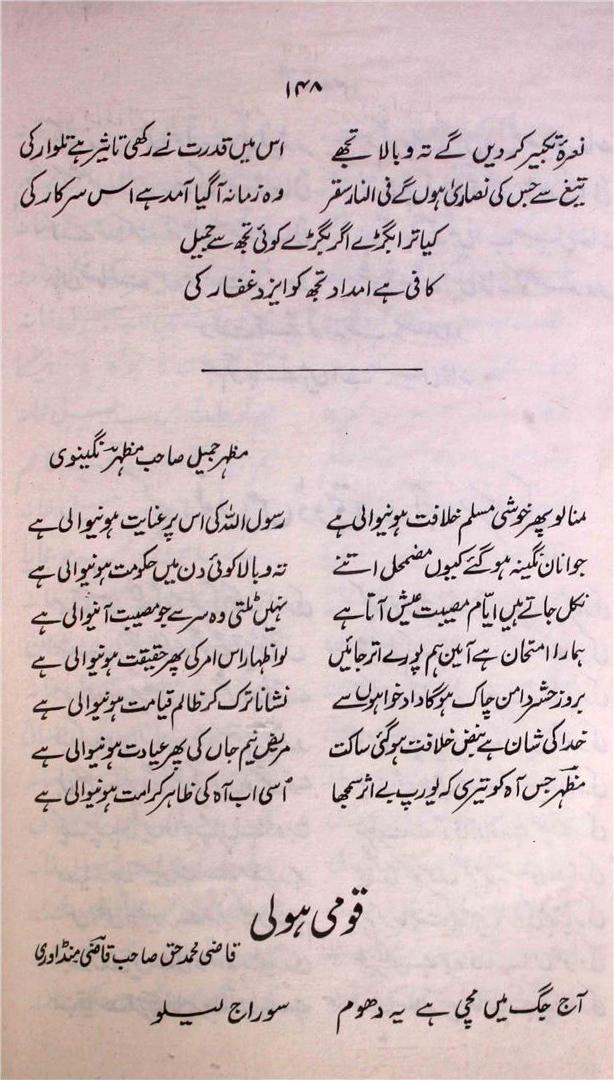 ۱۴۸
نعرۂ تکبیر کر دیں گے تہ و بالا تجھے اس میں قدرت نے رکھی تاثیر ہے تلوار کی
تیغ سے جس کی نصاریٰ ہوں گے فی النار سقر وہ زمانہ آگیا آمد ہے اس سرکار کی
کیا ترا بگڑے اگر بگڑے کوئی تجھ سے جمیل
کافی ہے امداد تجھ کو ایزد غفار کی
مظہر جمیل صاحب مظہر نگینوی
منالو پھر خوشی مسلم خلافت ہونیوالی ہے رسول اللہ کی اس پر عنایت ہونیوالی ہے
جوانان نگینہ ہو گئے کیوں مضمحل اتنے تہ و بالا کوئی دن میں حکومت ہونیوالی ہے
نکل جاتے ہیں ایّام مصیبت عیش آتا ہے نہیں ٹلتی وہ سر سے جو مصیبت آنیوالی ہے
ہمارا امتحان ہے آمین ہم پورے اتر جائیں لو اظہار اس امر کی پھر حقیقت ہونیوالی ہے
بروز حشر دامن چاک ہوگا داد خواہوں سے نشانا ترک کر ظالم قیامت ہونیوالی ہے
خدا کی شان ہے نبض خلافت ہوگئی ساکت مریض نیم جاں کی پھر عیادت ہونیوالی ہے
مظہر جس آہ کو تیری کہ یورپ بے اثر سمجھا اُسی اب آہ کی ظاہر کرامت ہونیوالی ہے
قومی ہولی
قاضی محمد حق صاحب قاضی منڈاوری
آج جگ میں مچی ہے یہ دھوم سوراج لیلو